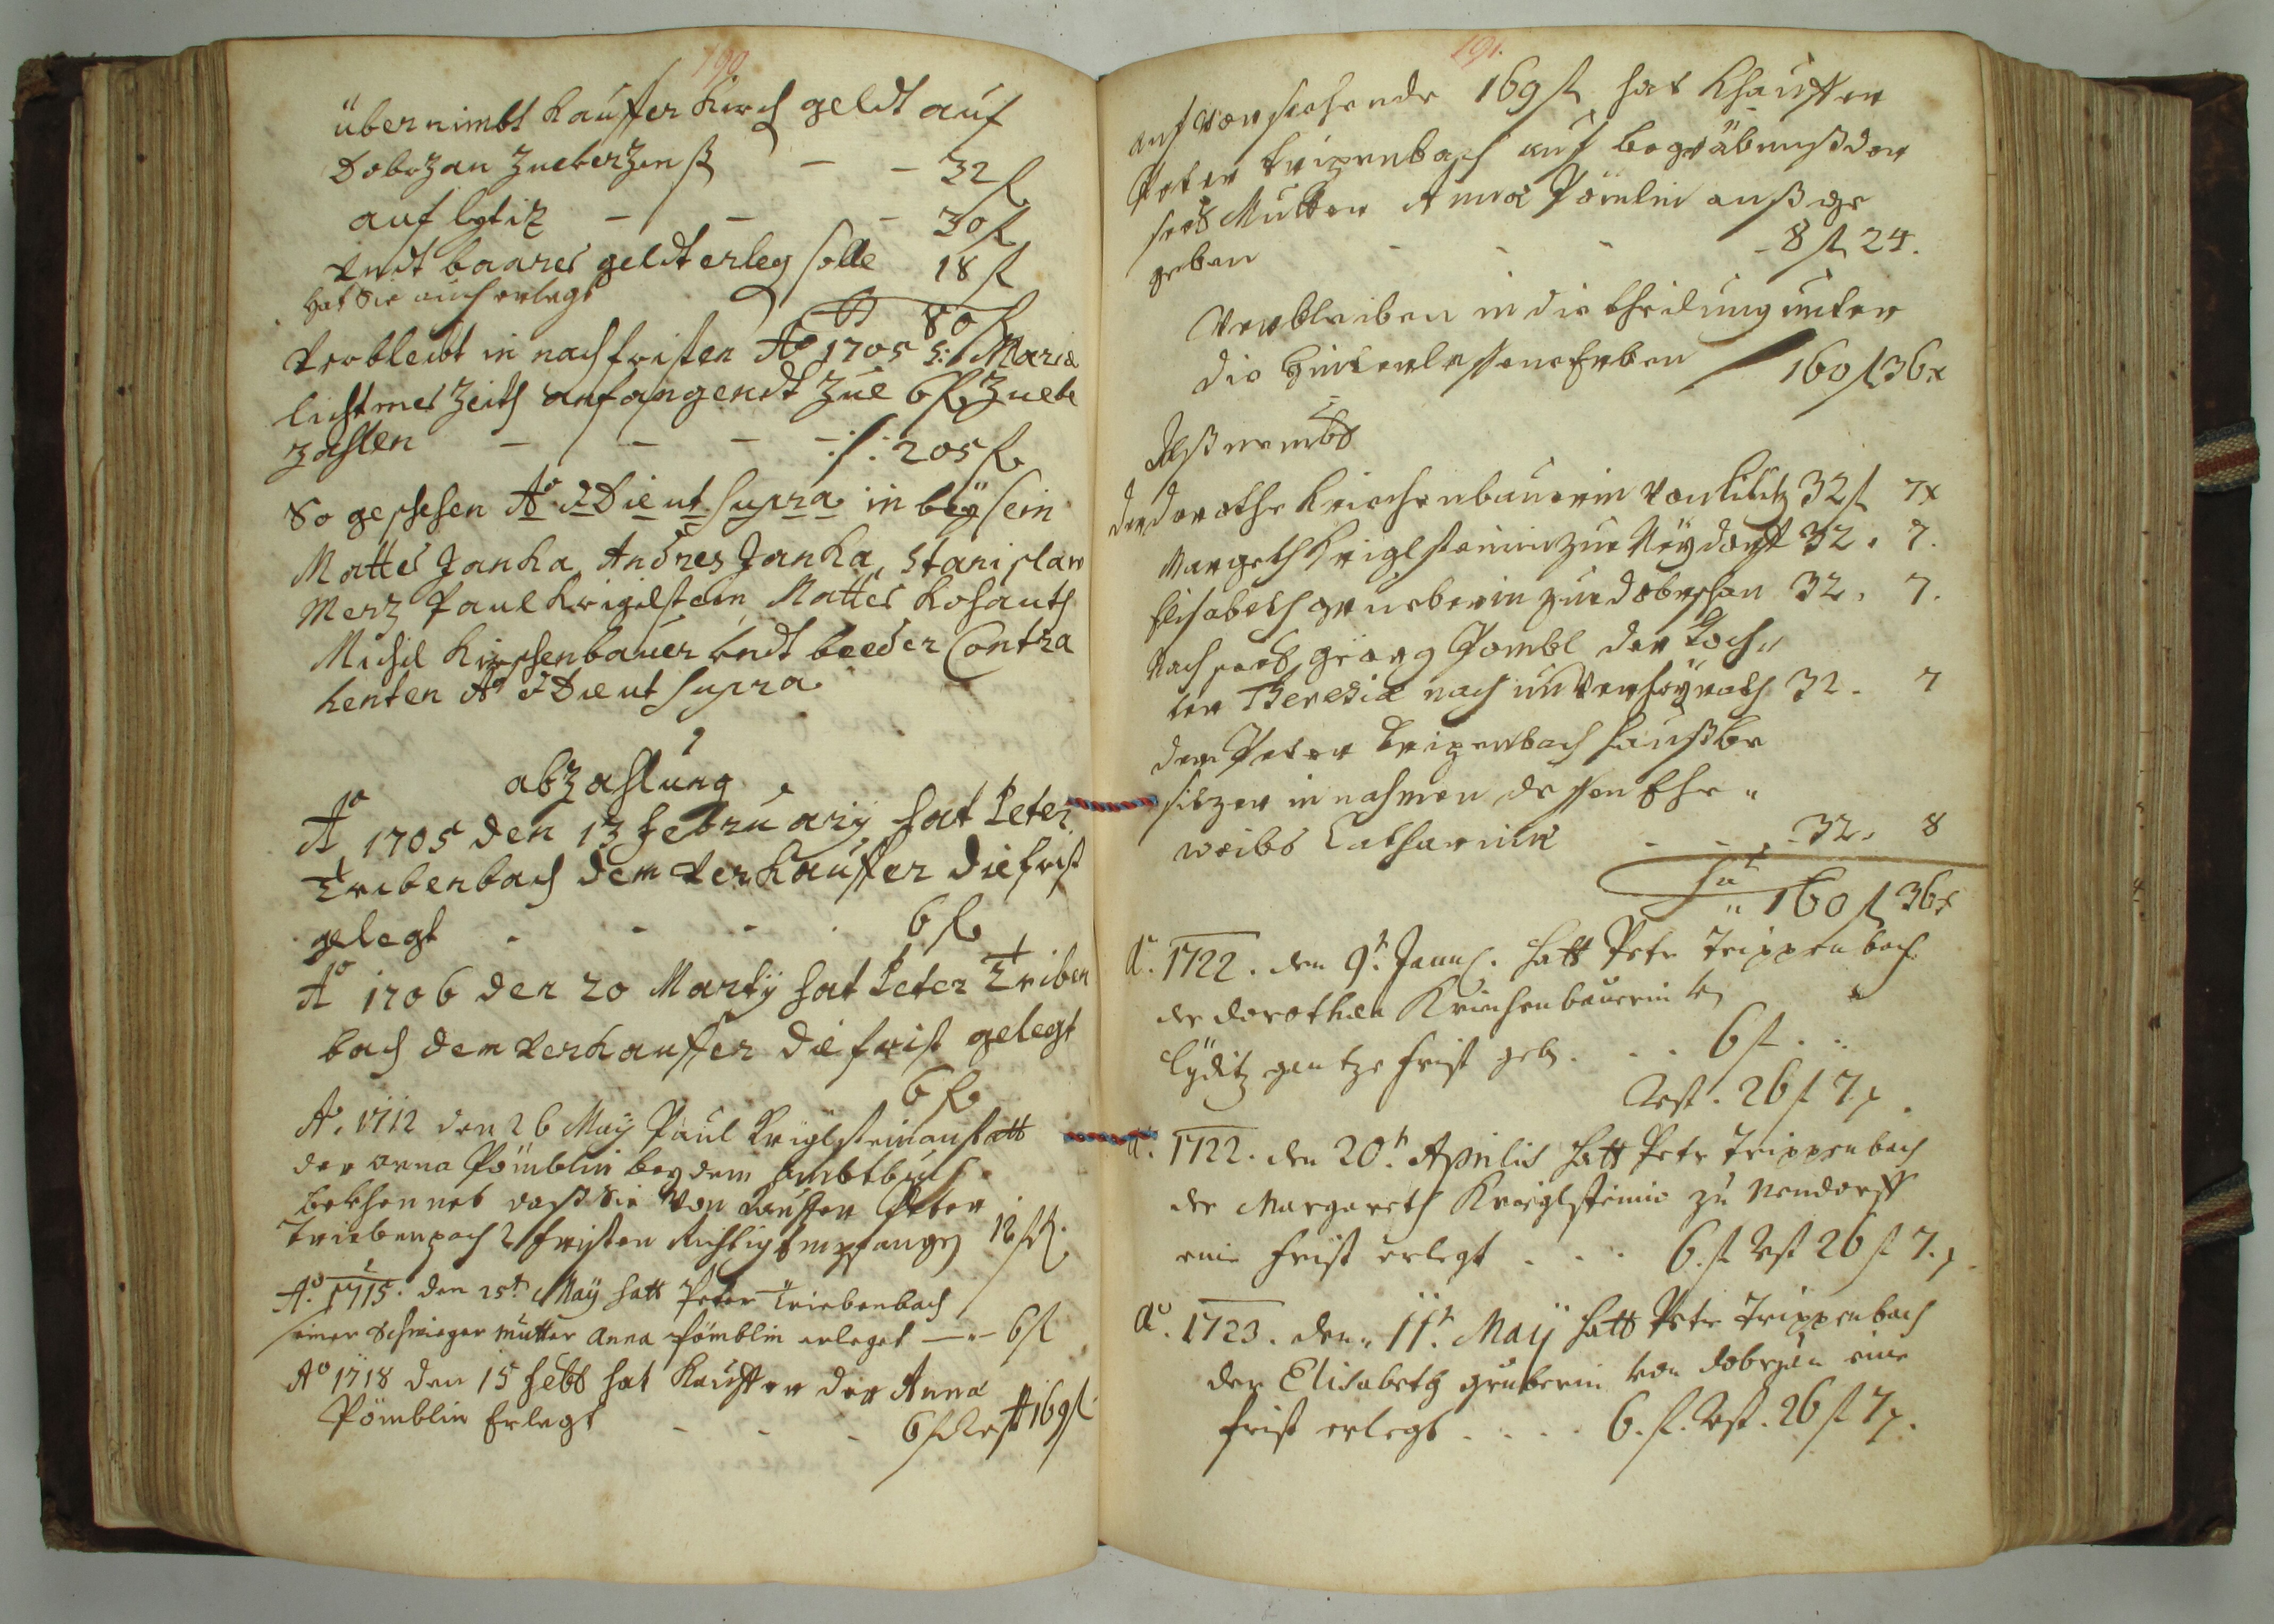 190
über nimbt Kauffer Kirch geldt auf
Dobrzan zueverzinß — — 32 fl
auf lytiz — — — 30 fl
Undt baares geldt erleg solle 18 fl
hat Sie auch erlegt
80 fl
Verbleibt in nachfristen Ao 1705 S: Maria
lichtmes Zeith anfangendt zue 6 fl zuebe
zahlen — — — — :/: 205 fl
So geschehen Ao & Die ut supra in beÿ sein
Mattes Janka, Andres Janka, Stanislaw
Merz Paul Krigelstein Mattes Kohauth
Michel Kirschenbauer undt beeder Contra
henten Ao & Die ut supra
abzahlung
Ao 1705 den 13 February hat Peter
Tribenbach dem Verkauffer die frist
gelegt - - - - 6 fl
Ao 1706 den 20 Marty hat Peter Triben
bach dem Verkauffer die frist gelegt
6 fl
Ao. 1712 den 26 Maÿ Paul Kriglstein anstatt
der anna Pömblin beÿ dem ambtbuch
bekhennet daß Sie von Kauffer Peter
Triebenpach 2 fristen Richtig Empfangen 12 fl.
Ao. 1715. den 25ten Maÿ hatt Peter Triebenbach
seiner Schwieger mutter anna Pömblin erleget — 6 fl
Ao 1718 den 15 Feb: hat Kauffer der Anna
Pömblin Erlegt - - - 6 fl Rest 169 fl
191.
auf vorstehende 169 fl hat Khauffer
Peter Tripenbach auf begräbnuß der
Mutter Anna Pömlin auß ge
geben - - - - 8 fl 24.
Verbleiben in die theilung unter
die hinterlassene Erben 160 fl 36 x
Alß nembt
der dorothe Kirschenbauerin von litiz 32 fl 7 x
Margeth Kriglsteinin zue Neÿdorff 32. 7.
Elisabeth grueberin zue dobrschan 32. 7.
Nach georg Pombl der Toch„
ter Theresia nach unverheÿrath 32. 7
dem Peter Tripenbach haußbe
sitzer in nahmen dessen Ehe„
weibs Catharina - - - 32. 8
160 fl 36 x
Ao. 1722. den 9t. hatt Petr Trippenbach
der dorothea Kirschenbauerin
Lÿditz gantze frist geb. . . 6 fl. . .
Rest. 26 fl 7 x.
Ao. 1722. den 20t. Aprilis hatt Petr Trippenbach
der Margareth Krieglsteinin zu Neudorff
eine frist erlegt . . . 6. fl Rest 26 fl 7. x
Ao. 1723. den. 11t. Maÿ hatt Petr Trippenbach
der Elisabeth gruberin von dobrzan eine
frist erlegt . . . . 6. fl. Rest. 26 fl 7 x.